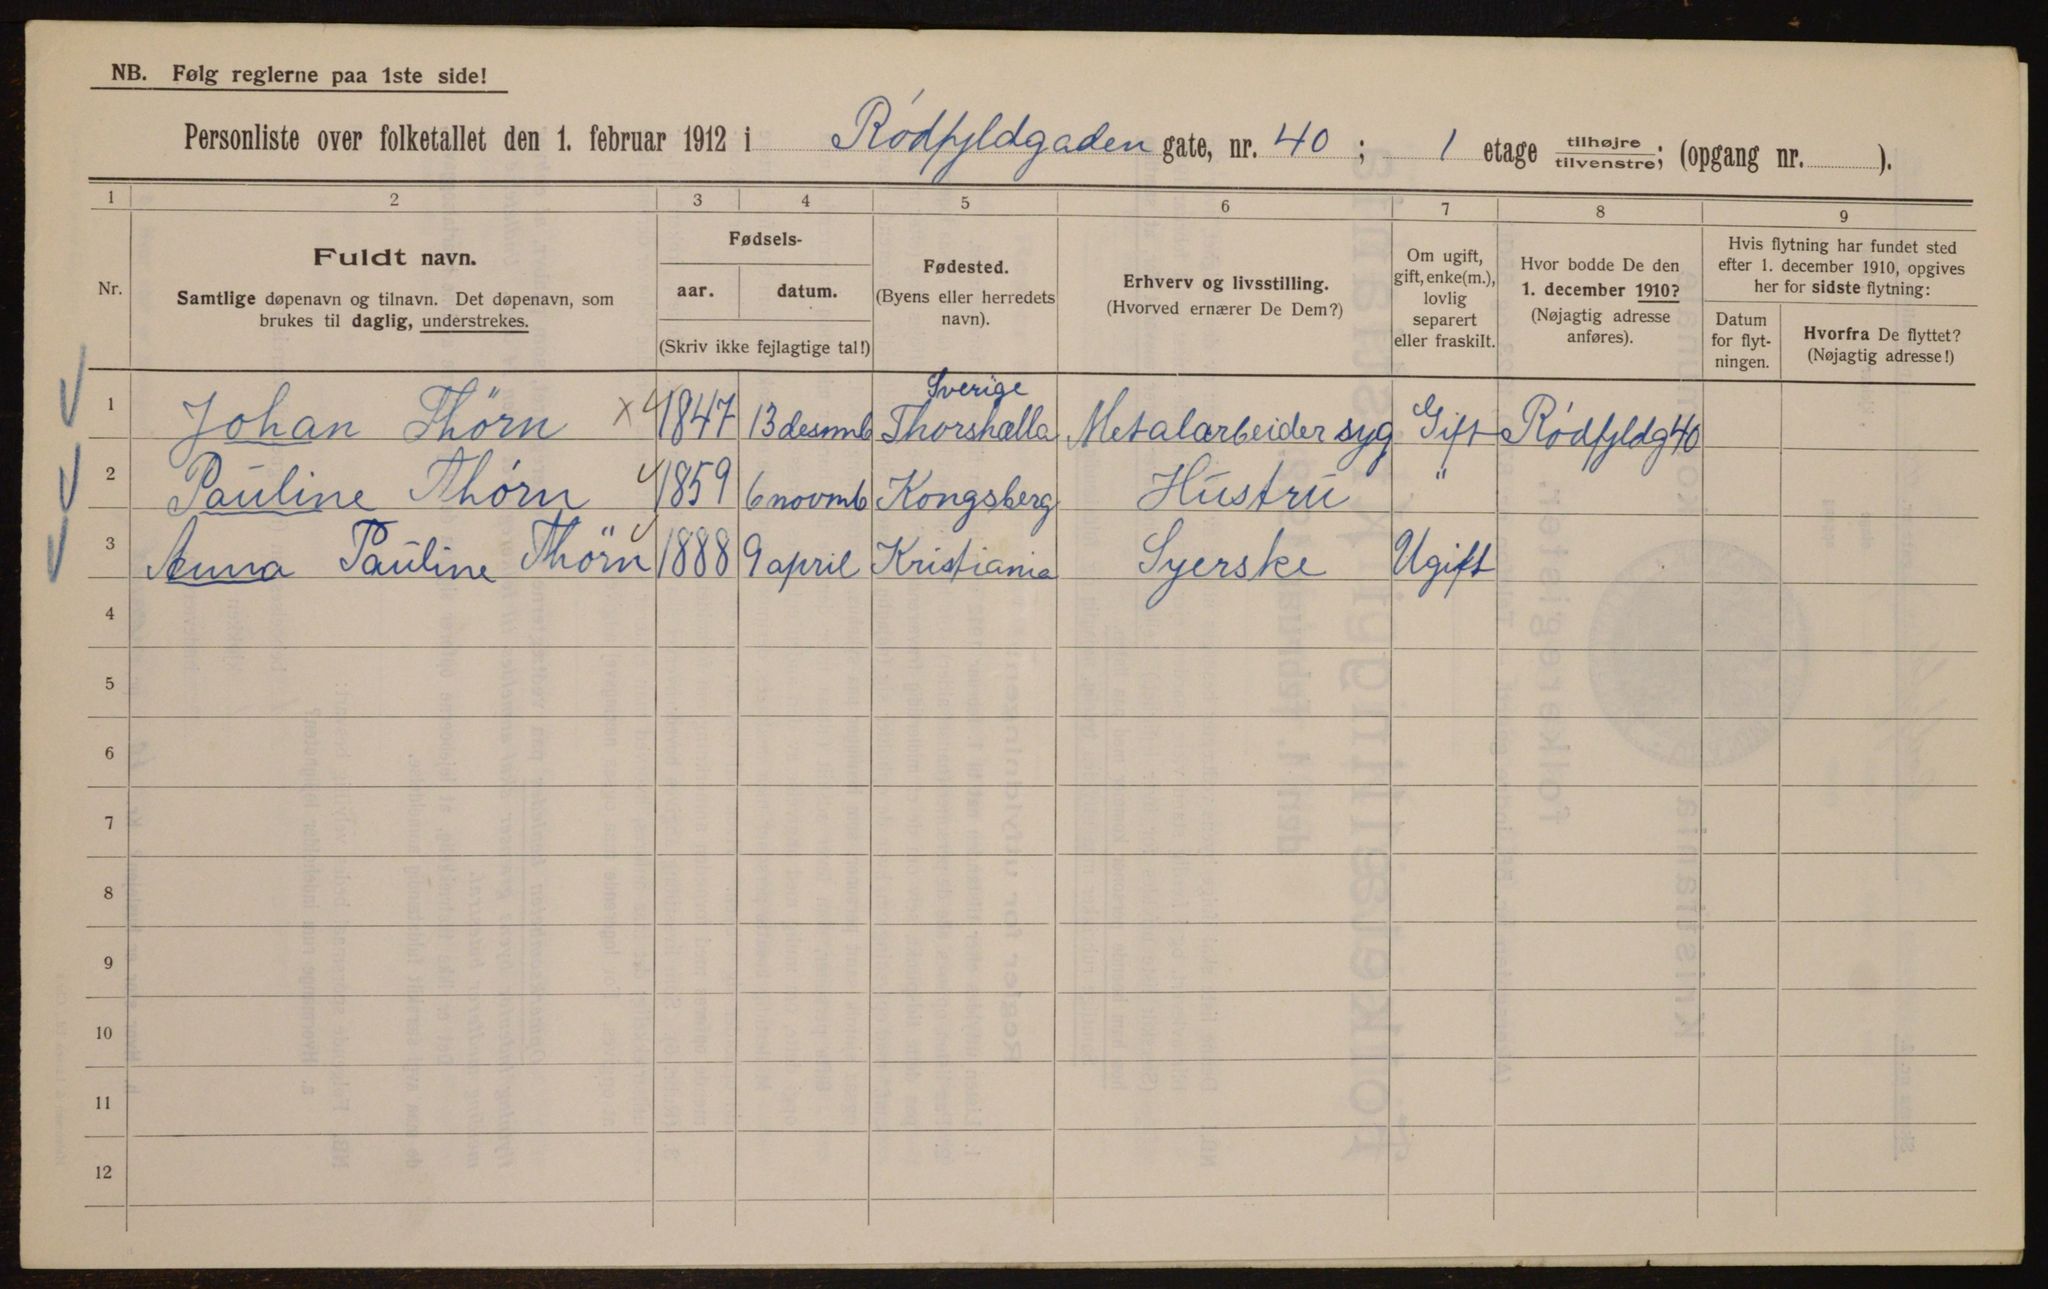 NB. Følg reglerne paa 1ste side!
Personliste over folketallet den 1. februar 1912 i Rødfyldgaden gate, nr. 40 ; 1 etage tilhøjre tilvenstre; (opgang nr. ).
1 2 3 4 5 6 7 8 9
Nr.
Fuldt navn.
Samtlige døpenavn og tilnavn. Det døpenavn, som
brukes til daglig, understrekes.
Fødsels-
aar. datum.
(Skriv ikke fejlagtige tal!)
Fødested.
(Byens eller herredets
navn).
Erhverv og livsstilling.
(Hvorved ernærer De Dem?)
Om ugift,
gift, enke(m.),
lovlig
separert
eller fraskilt.
Hvor bodde De den
1. december 1910?
(Nøjagtig adresse
anføres).
Hvis flytning har fundet sted
efter 1. december 1910, opgives
her for sidste flytning:
Datum
for flyt-
ningen.
Hvorfra De flyttet?
(Nøjagtig adresse!)
Sverige
1 Johan Thörn 1847 13 desmb Thorshælla Metalarbeider syg Gift Rødfyldg 40
2 Pauline Thörn 1859 6 novmb Kongsberg Hustru "
3 Anna Pauline Thörn 1888 9 april Kristiania Syerske Ugift
4
5
6
7
8
9
10
11
12